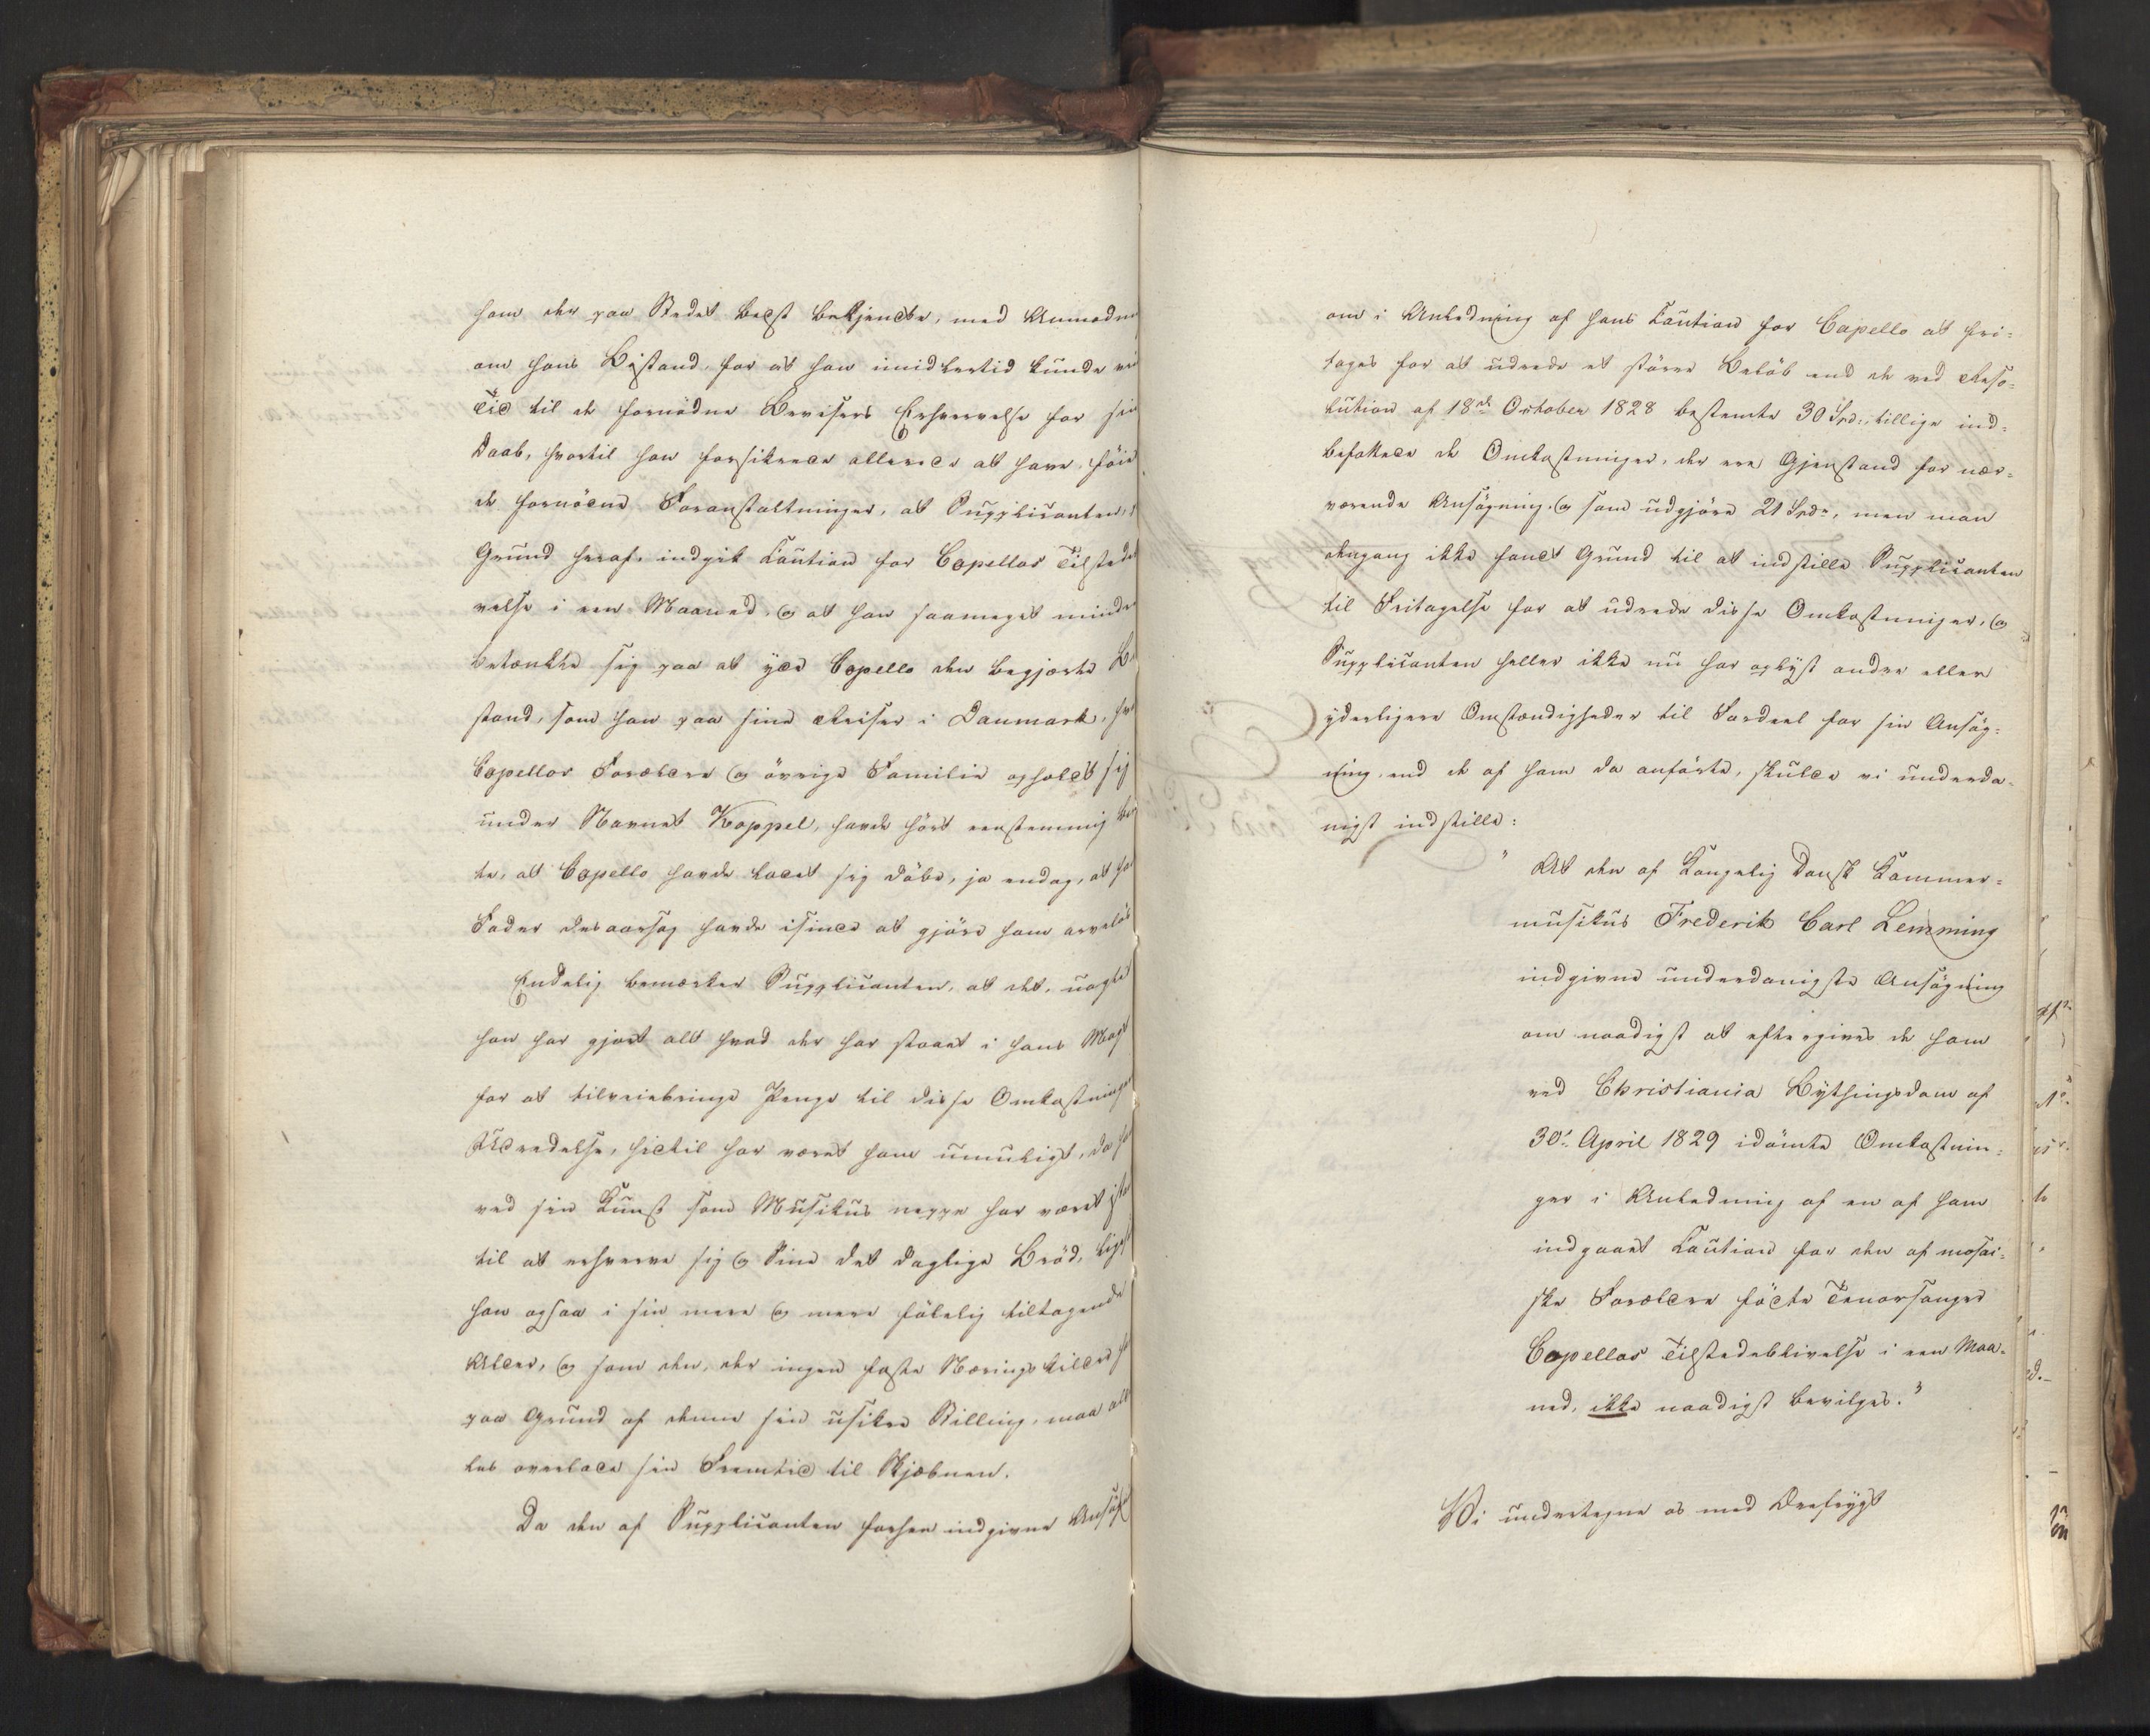 ham der paa Stedet bedst bekjendte, med Anmodn
om hans Bistand, for at han imidlertid kunde vin
Tid til de fornødne Bevisers Erhvervelse for sin
Daab, hvortil han forsikrede allerede at have føiet
de fornødne Foranstaltninger, at Supplicanten,
Grund heraf, indgik Caution for Capellos Tilstede
velse i een Maaned, og at han saameget mindre
betænkte sig paa at yde Capello den begjærte Bi
stand, som han paa sine Reiser i Danmark, hvor
Capellos Forældre og øvrige Familie opholdt sig
under Navnet Koppel, havde hørt eenstemmig be
te, at Capello havde ladet sig døbe, ja endog, at ha
Fader desaarsag havde isinde at gjøre ham arveløs
Endelig bemærker Supplicanten, at det, uagte
han har gjort alt hvad der har staaet i hans Magt
for at tilveiebringe Penge til disse Omkostninge
Udredelse, hidtil har været ham umuligt, da ha
ved sin Kunst som Musikus neppe har været istan
til at erhverve sig og Sine det daglige Brød, liges
han ogsaa i sin mere og mere følelig tiltagende
Alder, og som den, der ingen faste Næringskilder ha
paa Grund af denne sin usikre Stilling, maa all
les overlade sin Fremtid til Skjæbnen.
Da den af Supplicanten forhen indgivne Ansøg
om i Anledning af hans Caution for Capello at fri=
tages for at udrede et større Beløb end de ved Reso=
lution af 18de October 1828 bestemte 30 Spd:, tillige ind=
befattede de Omkostninger, der ere Gjenstand for nær=
værende Ansøgning, og som udgjøre 21 Spdr, men man
dengang ikke fandt Grund til at indstille Supplicanten
til Fritagelse for at udrede disse Omkostninger, og
Supplicanten heller ikke nu har oplyst andre eller
yderligere Omstændigheder til Fordeel for sin Ansøg=
ning, end de af ham da anførte, skulde vi underda=
nigst indstille:
"At den af Kongelig Dansk Kammer=
musikus Frederik Carl Lemming
indgivne underdanigste Ansøgning
om naadigst at eftergives de ham
ved Christiania Bythingsdom af
30te April 1829 idømte Omkostnin=
ger i Anledning af en af ham
indgaaet Caution for den af mosai=
ske Forældre fødte Tenorsanger
Capellos Tilstedeblivelse i een Maa=
ned, ikke naadigst bevilges."
Vi undertegne os med Ærefrygt